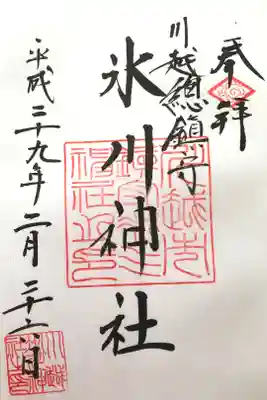 奉拝
川越總鎮守
氷川神社
平成二十九年二月二十六日